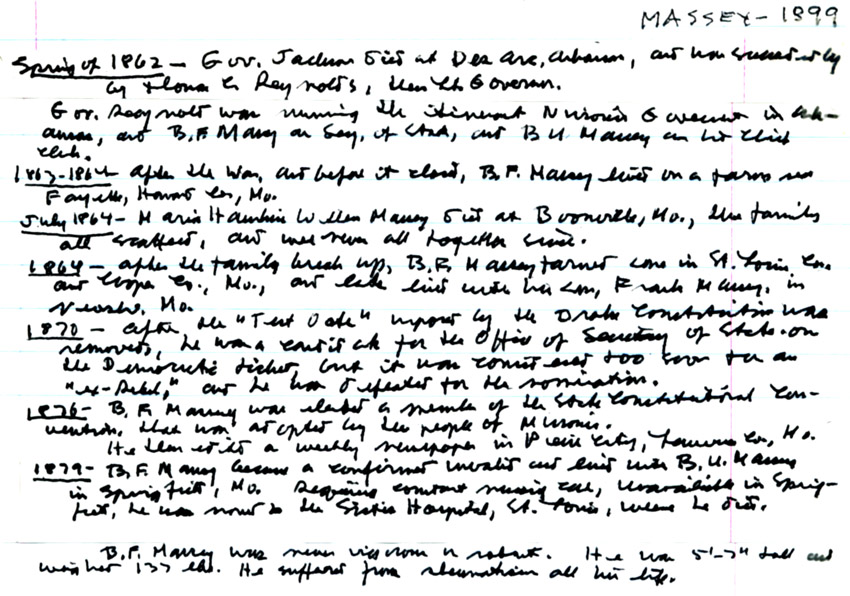 MASSEY - 1899
Spring of 1862 - Gov. Jackson died at Des Arc, Arkansas, and was succeeded by
by Thomas C. Reynolds, then Lt. Governor.
Gov. Reynolds was running the itinerant Missouri Government in Ark-
ansas, and B.F. Massey as Secy. of State, and B.U. Massey as his chief
clerk.
1863-1864 - After the war, and before it closed, B.F. Massey lived on a farm near
Fayette, Howard Co., Mo.
July 1864 - Maria Hawkins Withers Massey died at Boonville, Mo., the family
all scattered, and was never all together since.
1864 - After the family break up, B.F. Massey farmed some in St. Louis Co.
and Cooper Co., Mo., and later lived with his son, Frank Massey, in
Neosho, Mo.
1870 - After the "Test Oath" imposed by the Drake Constitution was
removed, he was a candidate for the Office of Secretary of State on
the Democratic ticket, but it was considered too soon for an
"ex-Rebel," and he was defeated for the nomination.
1876 - B.F. Massey was elected a member of the State Constitutional Con-
vention, that was adopted by the people of Missouri.
He then edited a weekly newspaper in Peirce City, Lawrence Co., Mo.
1879 - B.F. Massey became a confirmed invalid and lived with B.U. Massey
in Springfield, Mo. Requiring constant nursing care, unavailable in Spring-
field, he was moved to the Sisters Hospital, St. Louis, where he died.
B.F. Massey was never vigorous or robust. He was 5'-7" tall and
weighed 137 lbs. He suffered from rheumatism all his life.